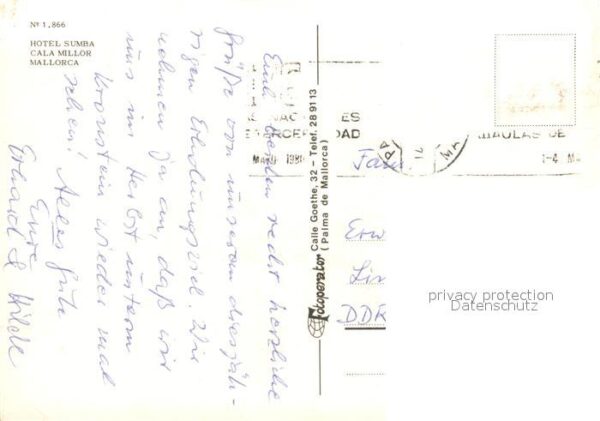 Nº 1.866
HOTEL SUMBA
CALA MILLOR
MALLORCA
Euch beiden recht herzliche
Grüße von unserem diesjäh-
rigen Erholungsziel. Wir
nehmen ja an, daß wir
uns im Herbst unterm
Kronstein wieder mal
sehen! Alles Gute
Eure
Erhard & Hilde
Fotoperator Calle Goethe, 32 - Telef. 28 91 13
(Palma de Mallorca)
NAC ES
TERCER DAD
MAYO 1980
PA
MAULAS DE
1-4 M
Fam.
Erw
Lin
DDR
privacy protection
Datenschutz